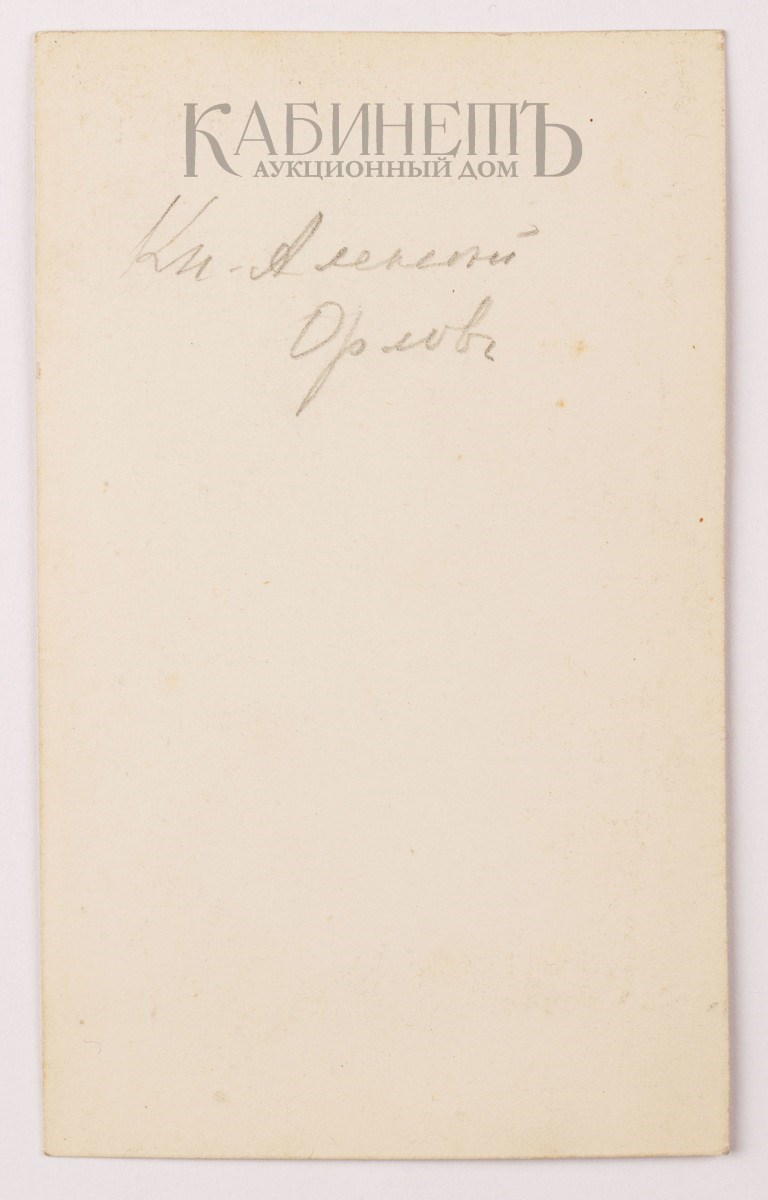 КАБИНЕТЪ
АУКЦИОННЫЙ ДОМ
Кн. Алексей
Орловъ